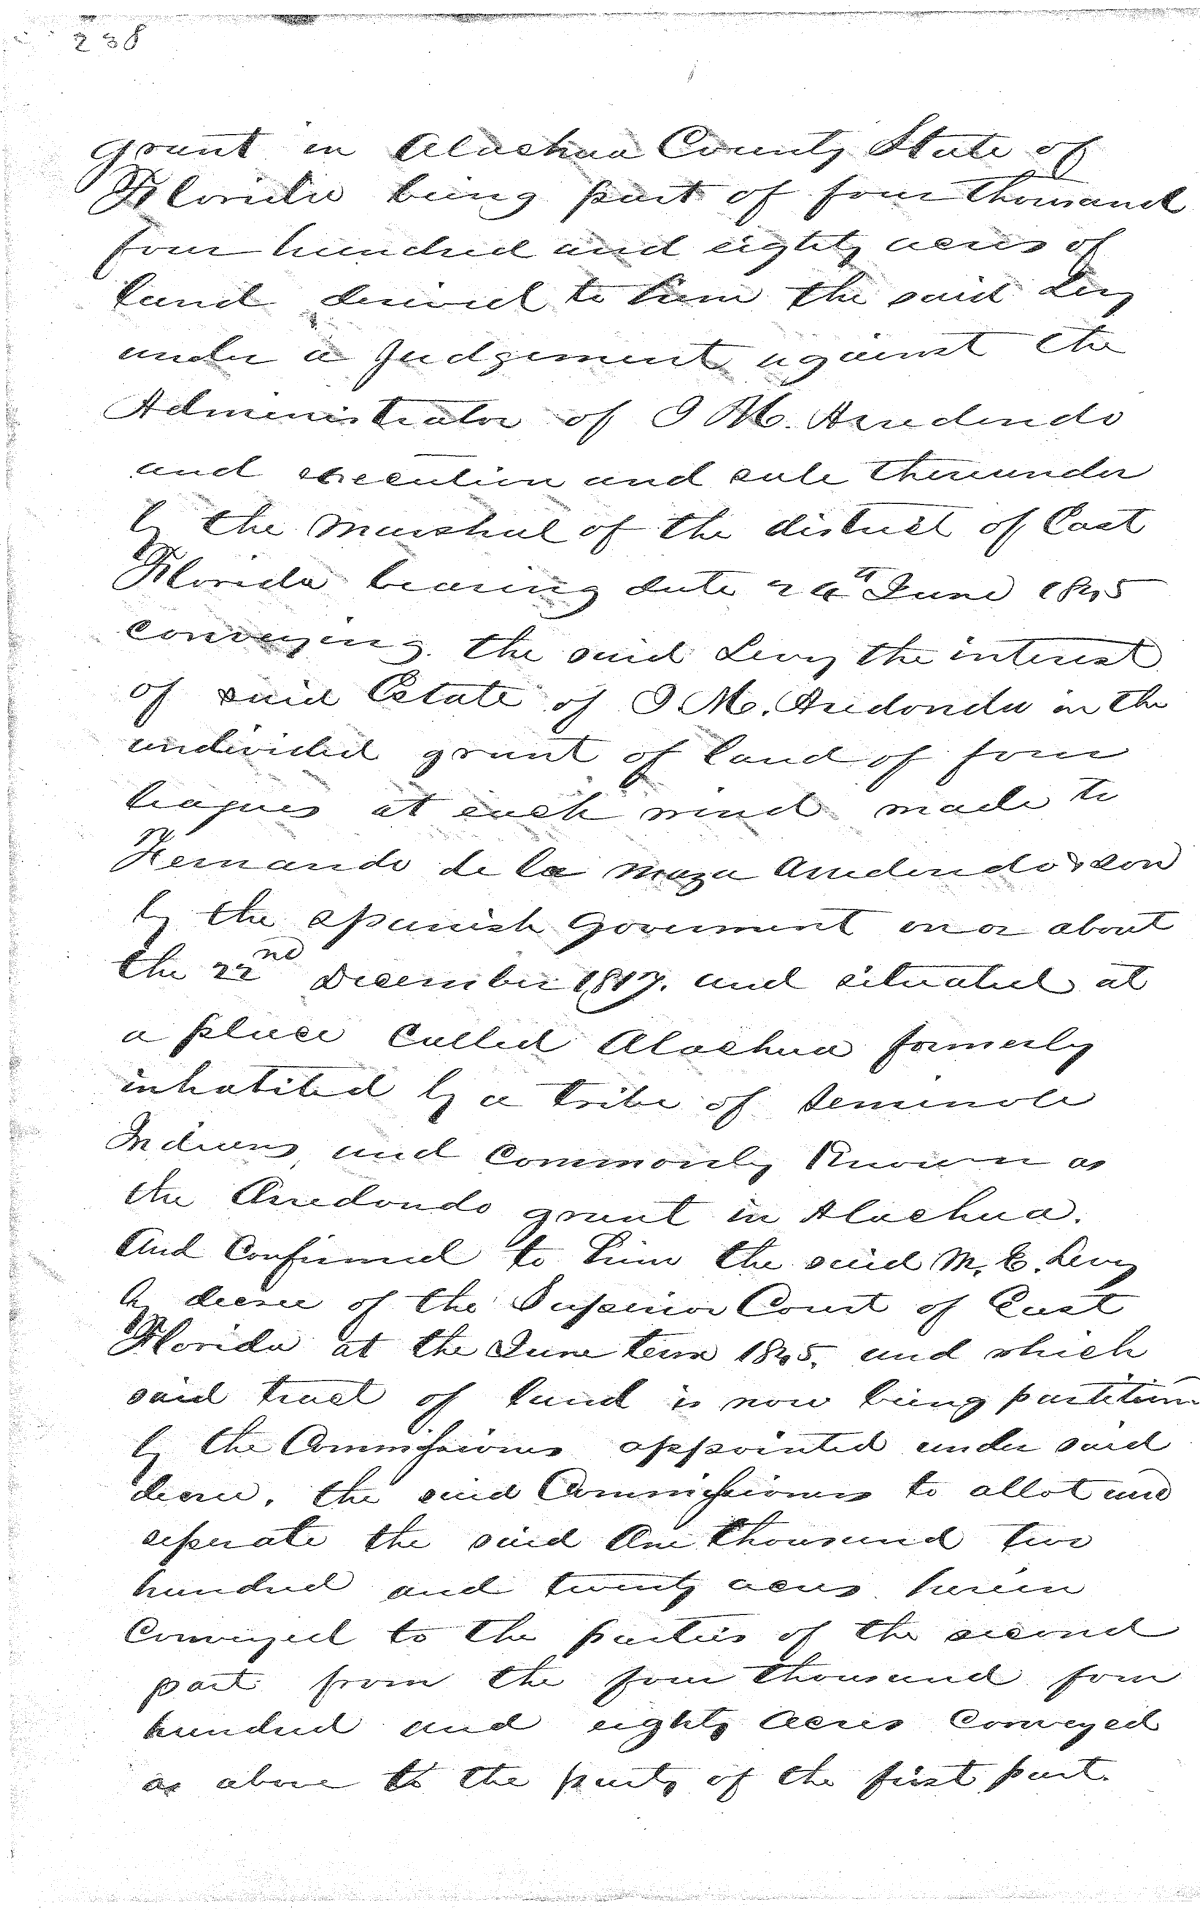 238
grant in Alachua County State of
Florida being part of four thousand
four hundred and eighty acres of
land derived to him the said Levy
under a Judgement against the
Administrator of J M. Arredondo
and execution and sale thereunder
by the Marshal of the district of East
Florida bearing date 24th June 1845
conveying the said Levy the interest
of said Estate of J. M. Aredondo in the
undivided grant of land of four
leagues at each wind made to
Fernando de la Maza Arredondo & son
by the Spanish Goverment on or about
the 22nd December 1817. and situated at
a place Called Alachua formerly
inhabited by a tribe of Seminole
Indians, and Commonly Known as
the Arredondo grant in Alachua.
And Confirmed to him the said M. E. Levy
by decree of the Superior Court of East
Florida at the June term 1845. and which
said tract of land is now being partition
by the Commissioners appointed under said
decree. the said Commissioners to allot and
seperate the said One thousand two
hundred and twenty acres herein
Conveyed to the parties of the second
part from the four thousand four
hundred and eighty acres Conveyed
as above to the party of the first part.